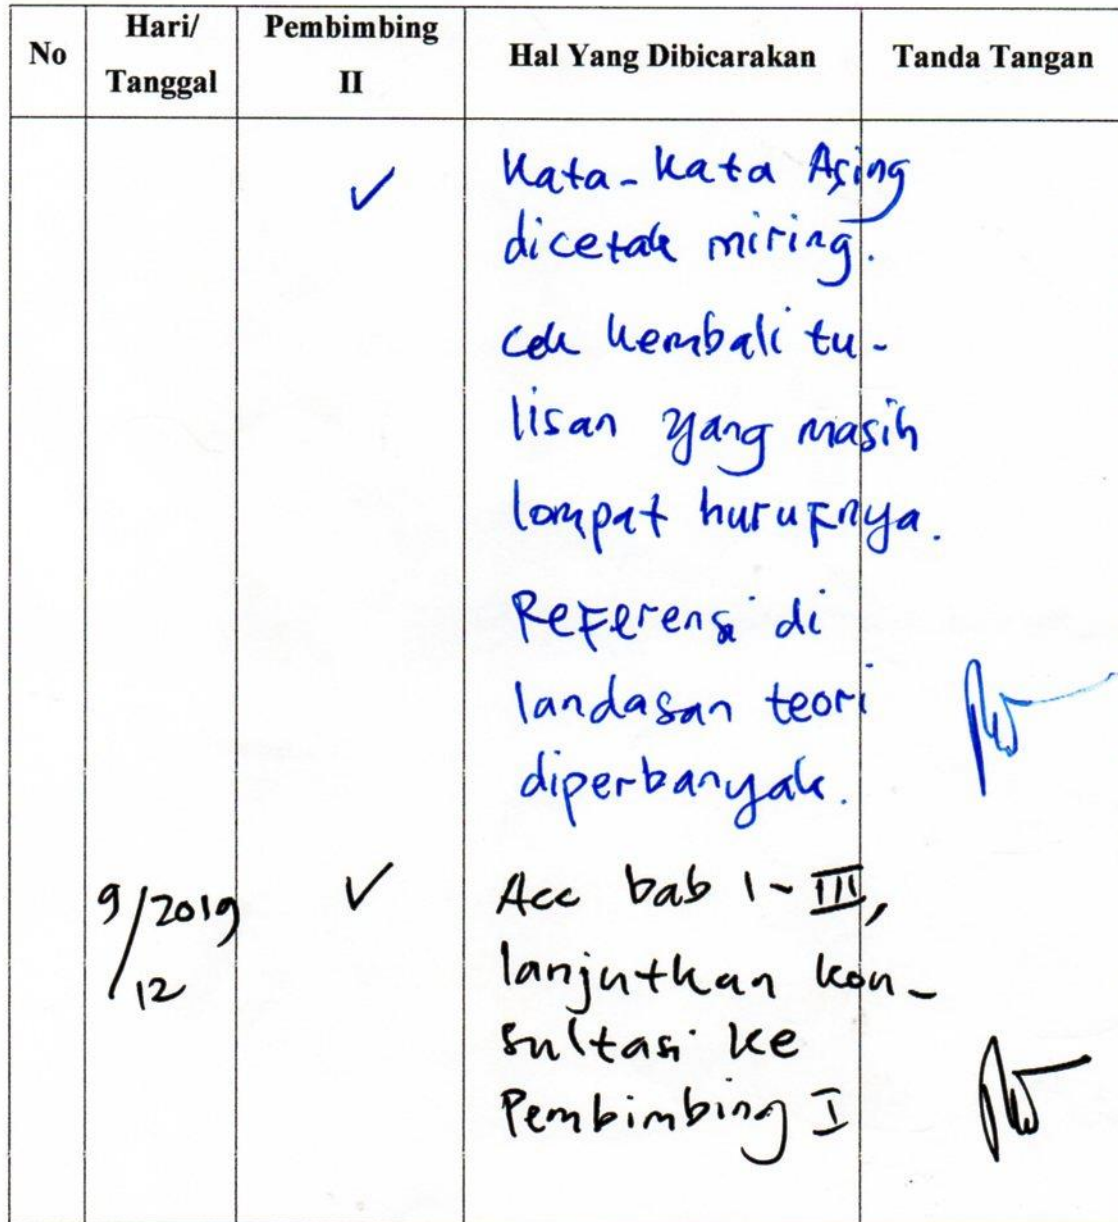 No Hari/ Tanggal Pembimbing II Hal Yang Dibicarakan Tanda Tangan
✓ Kata-kata Asing
dicetak miring.
cek kembali tu-
lisan yang masih
lompat hurufnya.
Referensi di
landasan teori
diperbanyak.
9/2019 ✓ Acc bab I - III,
/12 lanjutkan kon-
sultasi ke
Pembimbing I